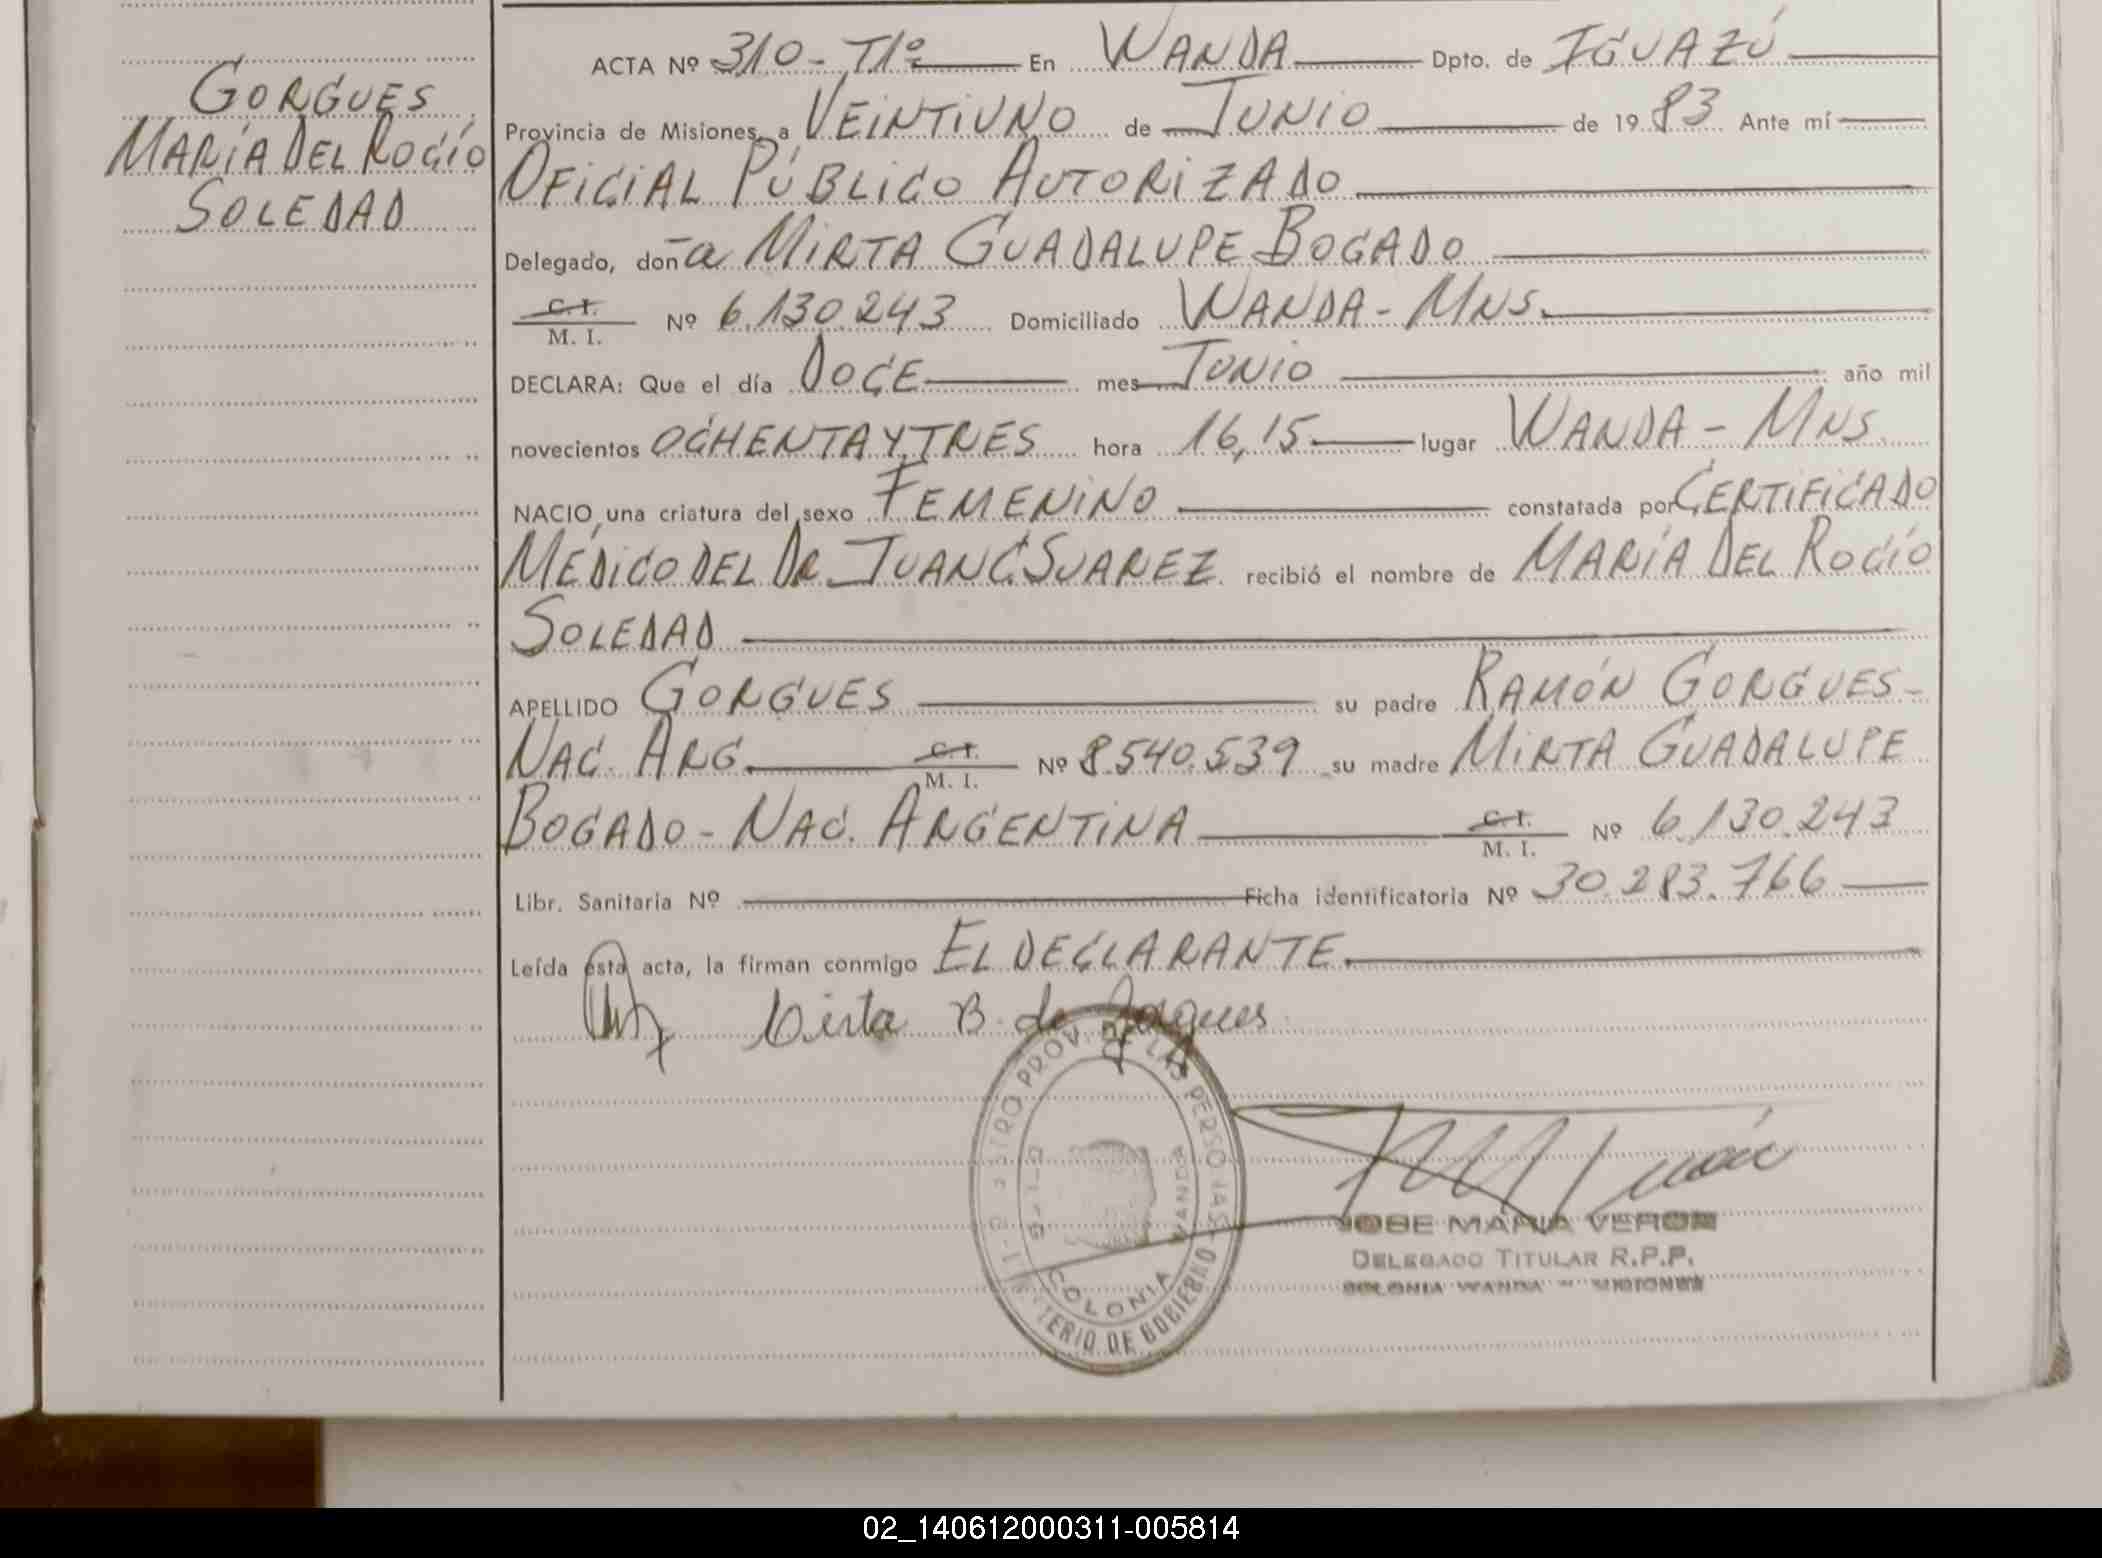 GORGUES
MARÍA DEL ROCÍO
SOLEDAD
ACTA Nº 310 - T1º En WANDA Dpto. de IGUAZÚ
Provincia de Misiones, a VEINTIUNO de JUNIO de 1983 Ante mí
OFICIAL PÚBLICO AUTORIZADO
Delegado, doña MIRTA GUADALUPE BOGADO
C. I.
M. I. Nº 6.130.243 Domiciliado WANDA - MNS.
DECLARA: Que el día DOCE mes JUNIO año mil
novecientos OCHENTA Y TRES hora 16,15 lugar WANDA - MNS.
NACIO, una criatura del sexo FEMENINO constatada por CERTIFICADO
MÉDICO DEL DR. JUAN C. SUAREZ recibió el nombre de MARÍA DEL ROCÍO
SOLEDAD
APELLIDO GORGUES su padre RAMÓN GORGUES -
NAC. ARG. C. I. M. I. Nº 8.540.539 su madre MIRTA GUADALUPE
BOGADO - NAC. ARGENTINA C. I. M. I. Nº 6.130.243
Libr. Sanitaria Nº Ficha identificatoria Nº 30.283.766
Leída esta acta, la firman conmigo EL DECLARANTE.
Mirta B. de Gorgues
PROV. DE LAS PERSONAS
COLONIA WANDA
MINISTERIO DE GOBIERNO
JOSE MARIA VERON
DELEGADO TITULAR R.P.P.
COLONIA WANDA - MISIONES
02_140612000311-005814